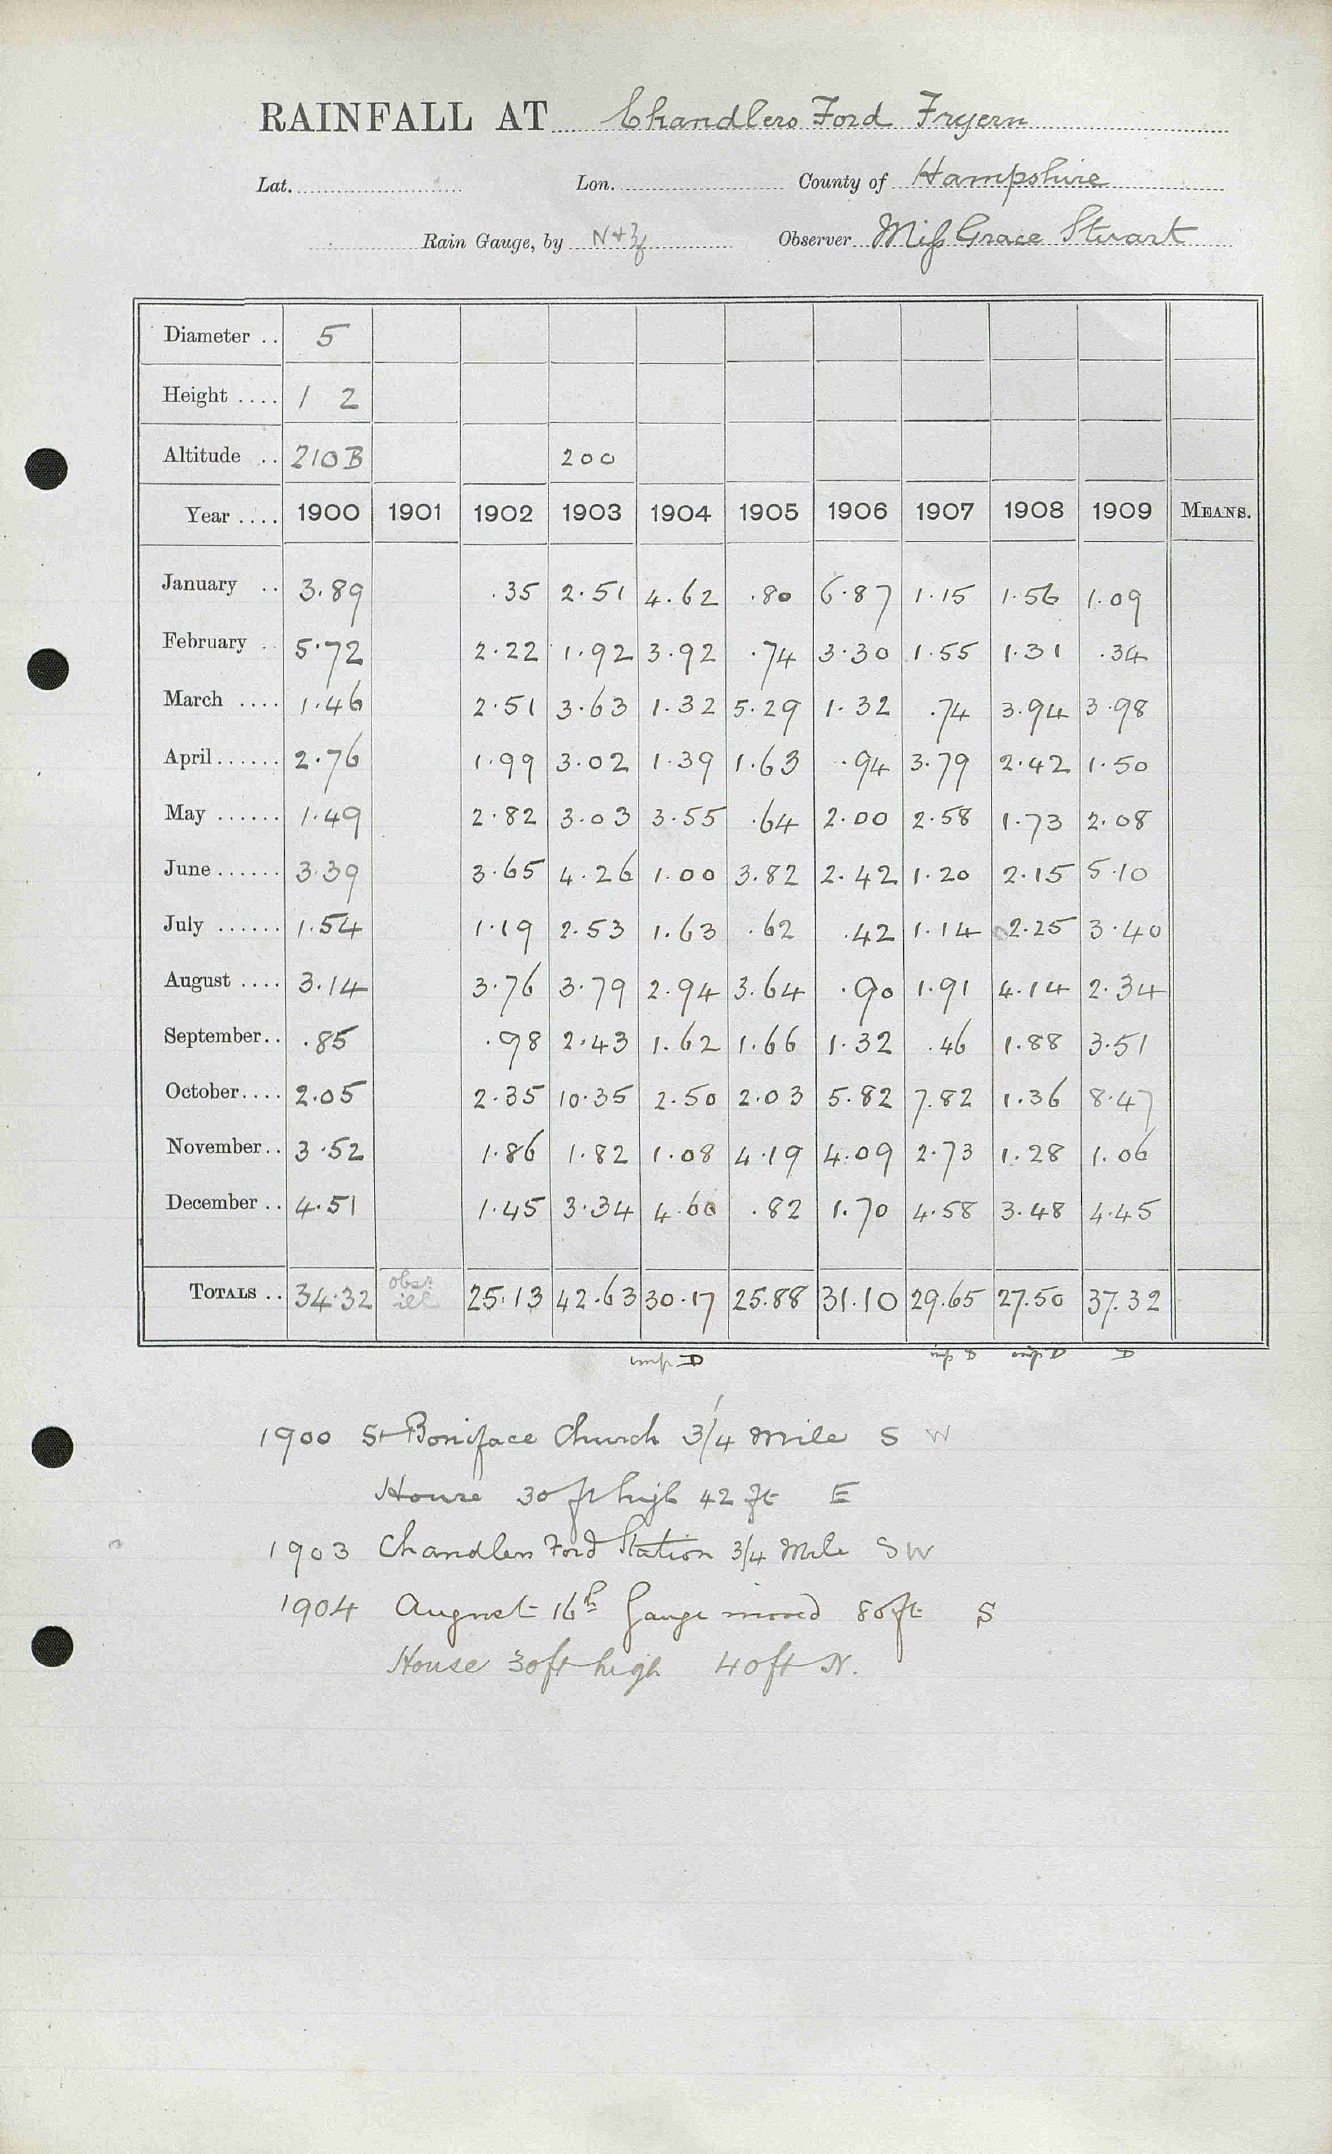 RAINFALL AT Chandlers Ford Fryern
Lat. Lon. County of Hampshire
Rain Gauge, by N+Z Observer Miss Grace Stuart
Diameter .. 5
Height .... 1 2
Altitude .. 210B 200
Year .... 1900 1901 1902 1903 1904 1905 1906 1907 1908 1909 MEANS.
January .. 3.89 .35 2.51 4.62 .80 6.87 1.15 1.56 1.09
February .. 5.72 2.22 1.92 3.92 .74 3.30 1.55 1.31 .34
March .... 1.46 2.51 3.63 1.32 5.29 1.32 .74 3.94 3.98
April ...... 2.76 1.99 3.02 1.39 1.63 .94 3.79 2.42 1.50
May ...... 1.49 2.82 3.03 3.55 .64 2.00 2.58 1.73 2.08
June ...... 3.39 3.65 4.26 1.00 3.82 2.42 1.20 2.15 5.10
July ...... 1.54 1.19 2.53 1.63 .62 .42 1.14 2.25 3.40
August .... 3.14 3.76 3.79 2.94 3.64 .90 1.91 4.14 2.34
September .. .85 .98 2.43 1.62 1.66 1.32 .46 1.88 3.51
October .... 2.05 2.35 10.35 2.50 2.03 5.82 7.82 1.36 8.47
November .. 3.52 1.86 1.82 1.08 4.19 4.09 2.73 1.28 1.06
December .. 4.51 1.45 3.34 4.60 .82 1.70 4.58 3.48 4.45
TOTALS .. 34.32 obsr ill 25.13 42.63 30.17 25.88 31.10 29.65 27.50 37.32
imp D imp D imp D D
1900 St Boniface Church 3/4 mile S W
House 30 ft high 42 ft E
1903 Chandlers Ford Station 3/4 Mile SW
1904 August 16th Gauge moved 80ft S
House 30ft high 40ft N.